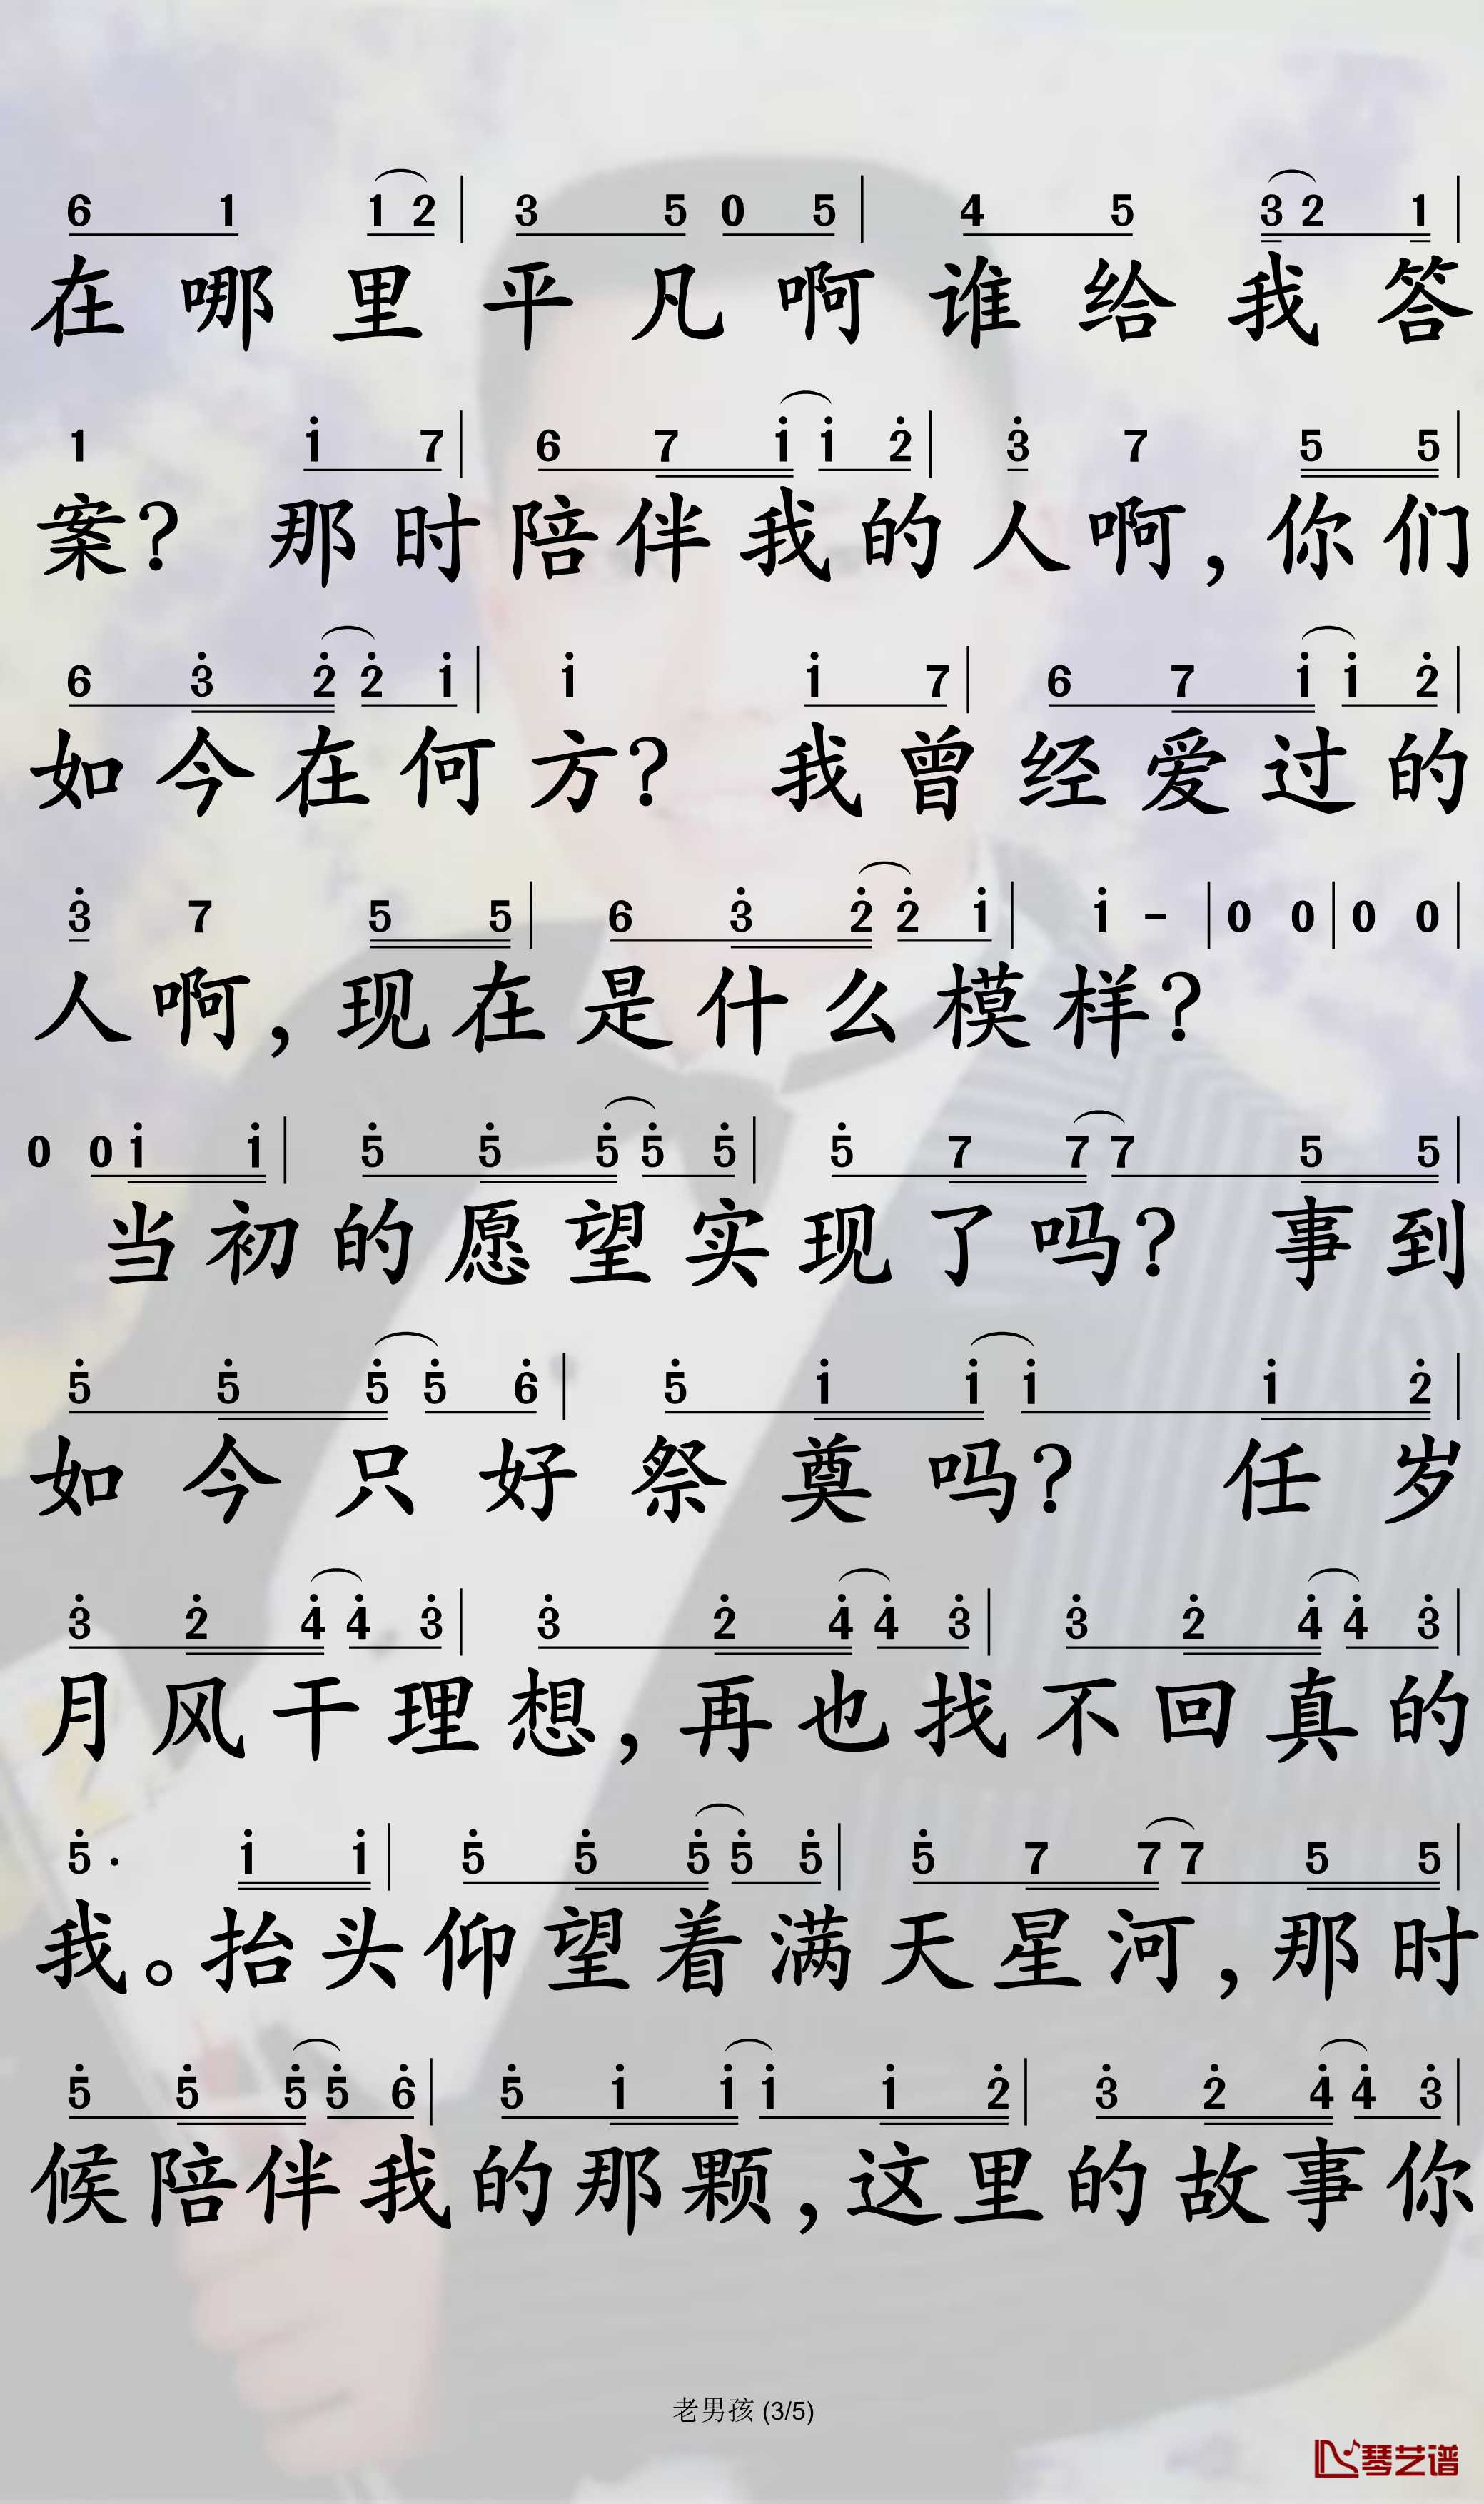 6 1 1 2 | 3 5 0 5 | 4 5 3 2 1 |
在哪里平凡啊谁给我答
1 i 7 | 6 7 i i 2̇ | 3̇ 7 5 5 |
案？ 那时陪伴我的人啊，你们
6 3̇ 2̇ 2̇ i | i i 7 | 6 7 i i 2̇ |
如今在何方？ 我曾经爱过的
3̇ 7 5 5 | 6 3̇ 2̇ 2̇ i | i - | 0 0 | 0 0 |
人啊，现在是什么模样？
0 0 i i | 5̇ 5̇ 5̇ 5̇ 5̇ | 5̇ 7 7 7 5 5 |
当初的愿望实现了吗？ 事到
5̇ 5̇ 5̇ 5̇ 6̇ | 5̇ i i i i 2̇ |
如今只好祭奠吗？ 任岁
3̇ 2̇ 4̇ 4̇ 3̇ | 3̇ 2̇ 4̇ 4̇ 3̇ | 3̇ 2̇ 4̇ 4̇ 3̇ |
月风干理想，再也找不回真的
5̇· i i | 5̇ 5̇ 5̇ 5̇ 5̇ | 5̇ 7 7 7 5 5 |
我。抬头仰望着满天星河，那时
5̇ 5̇ 5̇ 5̇ 6̇ | 5̇ i i i i 2̇ | 3̇ 2̇ 4̇ 4̇ 3̇ |
候陪伴我的那颗，这里的故事你
老男孩 (3/5)
琴艺谱